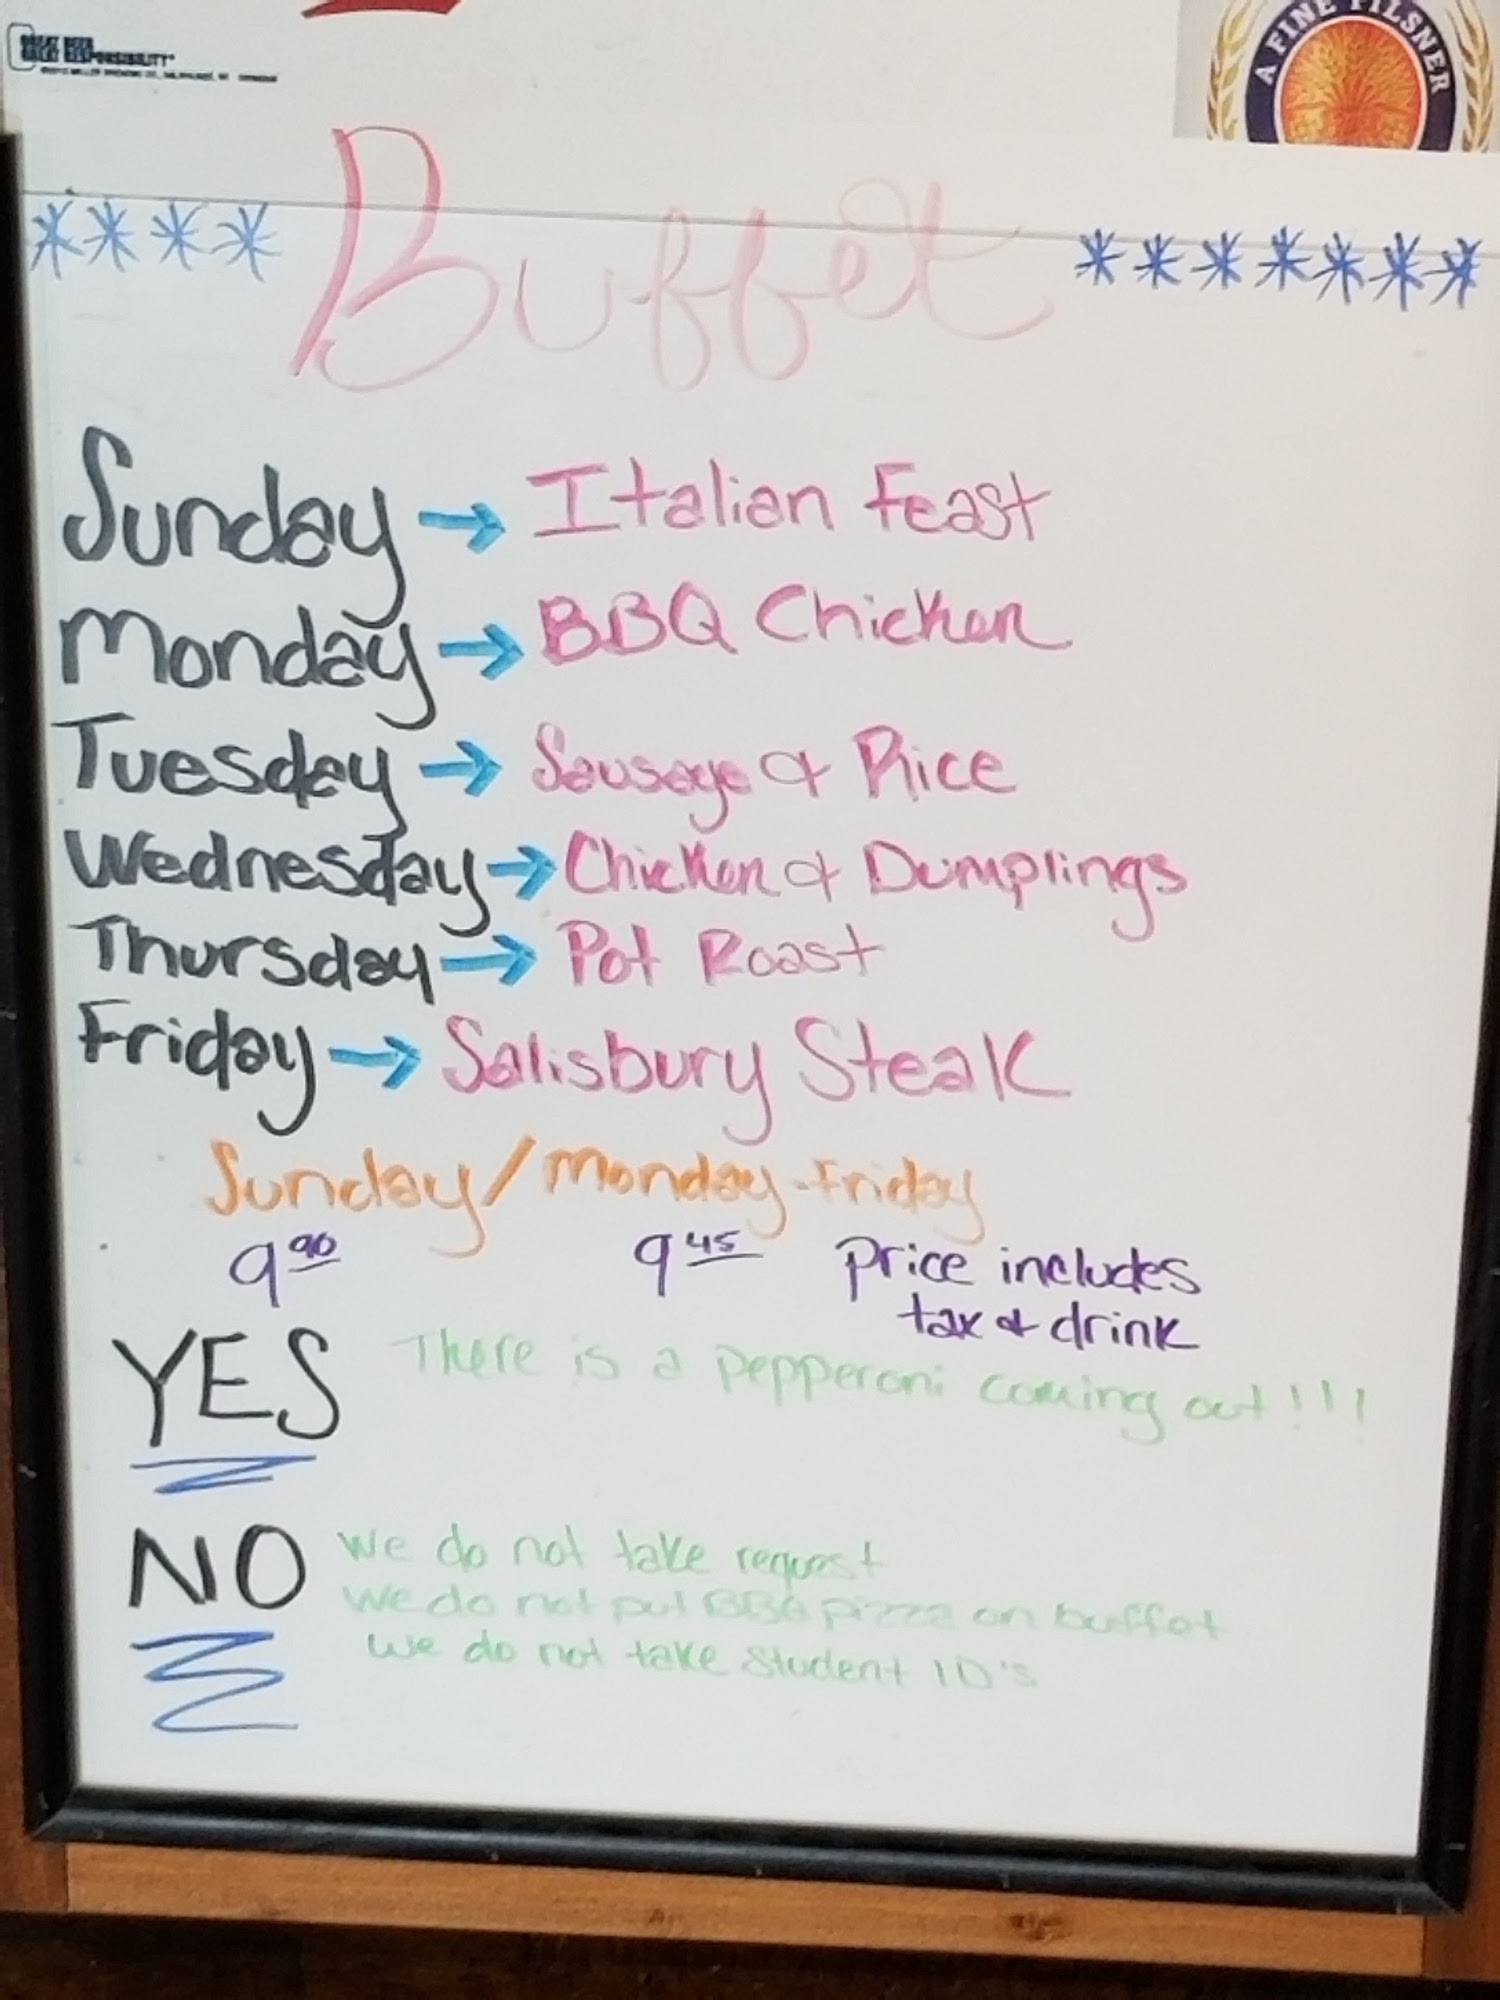 GREAT BEER
GREAT RESPONSIBILITY
A FINE PILSNER
**** Buffet *******
Sunday → Italian Feast
Monday → BBQ Chicken
Tuesday → Sausage & Rice
Wednesday → Chicken & Dumplings
Thursday → Pot Roast
Friday → Salisbury Steak
Sunday/Monday-Friday
9 90 9 45 Price includes
tax & drink
YES There is a pepperoni coming out!!!
NO We do not take request
We do not put BBQ pizza on buffet
We do not take Student ID's